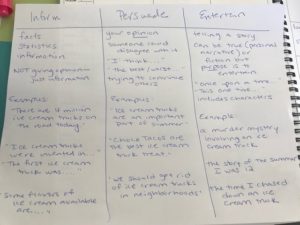 Inform
facts
statistics
information
NOT giving opinion -
just information
Examples:
"There are 4 million
ice cream trucks on
the road today."
"Ice cream trucks
were invented in..."
"The first ice cream
truck was....."
"Some flavors of
ice cream available
are....."
Persuade
your opinion
someone could
disagree with it
"I think..."
"The best/worst..."
trying to convince
others
Example:
"Ice cream trucks
are an important
part of summer."
"Choco Tacos are
the best ice cream
truck treat."
"We should get rid
of ice cream trucks
in neighborhoods"
Entertain
telling a story
can be true (personal
narrative) or
fiction but
purpose is to
entertain
"Once upon a time..."
"This one time..."
includes characters
Example:
a murder mystery
involving an ice
cream truck
the story of the summer
I was 12
the time I chased
down an ice
cream truck